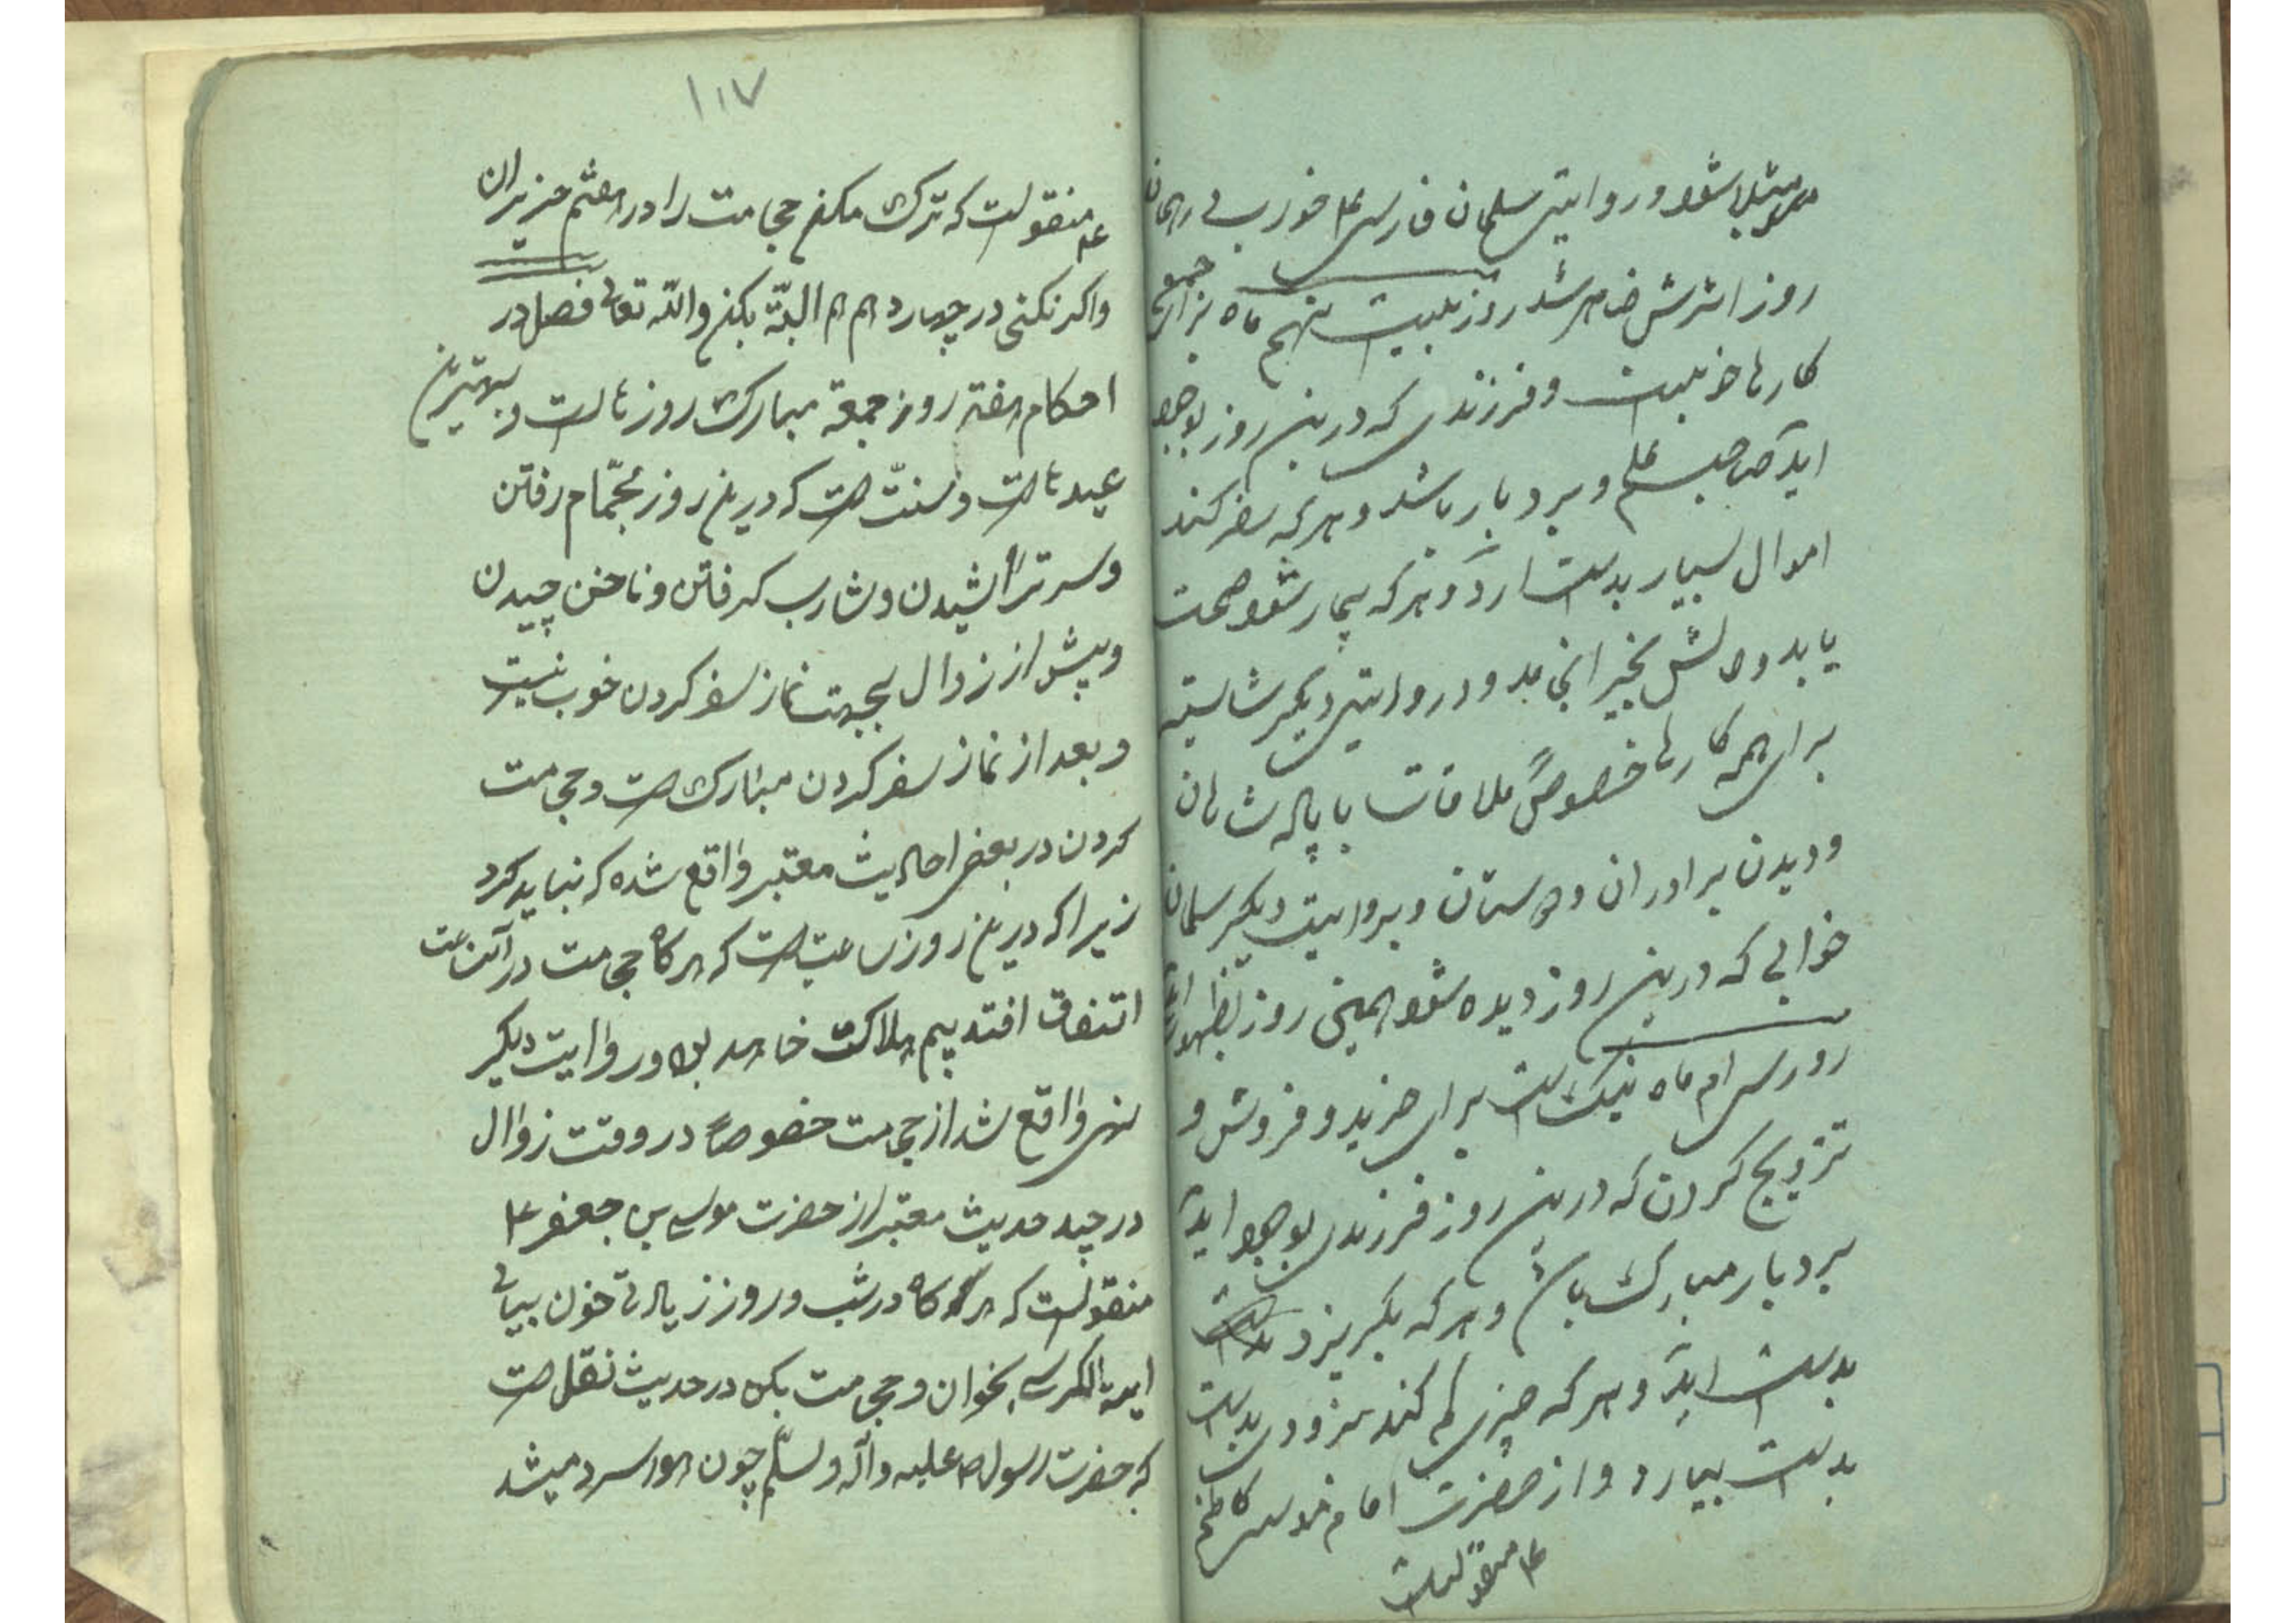 مبتلا شود و روایتی سلمان فارسی ع خور بی همان
روز اثرش ظاهر شد روز بیست نهم ماه برای جمیع
کارها خوبست و فرزندی که درین روز بوجود
اید صاحب علم و بردبار باشد و هر که سفر کند
اموال بسیار بدست ارد و هر که بیمار شود صحت
یابد و مالش بخیر انجامد و در روایتی دیگر شایسته
برای همه کارها خصوصاً ملاقات با پادشاهان
و دیدن برادران و دوستان و بروایت دیگر سلمان
خوابی که درین روز دیده شود همین روز بظهور اید
روز سی ام ماه نیک است برای خرید و فروش و
تزویج کردن که درین روز فرزندی بوجود اید
بردبار مبارک باشد و هر که بگریزد
بدست اید و هر که چیزی گم کند بزودی بدست
بدست بیارد و از حضرت امام موسی کاظم
ع منقولست
۱۱۷
ع منقولست که ترک مکن حجامت را در هفتم حزیران
واکر نکنی در چهاردهم هم البته بکن والله تعالی فصل در
احکام هفته روز جمعه مبارک روزهاست و بهترین
عیدهاست و سنت است که درین روز بحمام رفتن
و سر تراشیدن و شارب کرفتن و ناخن چیدن
و پیش از زوال بجهت نماز سفر کردن خوب نیست
و بعد از نماز سفر کردن مبارک است و حجامت
کردن در بعضی احادیث معتبر واقع شده که نباید کرد
زیرا که درین روز ساعتی است که هرکاه حجامت در آن ساعت
اتفاق افتد بیم هلاکت خواهد بود و روایت دیگر
نهی واقع شد از حجامت خصوصاً در وقت زوال
در چند حدیث معتبر از حضرت موسی بن جعفر ع
منقولست که هرکاه در شب و روز زیادتی خون بیابی
ایة الکرسی بخوان و حجامت بکن در حدیث نقل است
که حضرت رسول ص علیه وآله وسلم چون هوا سرد میشد